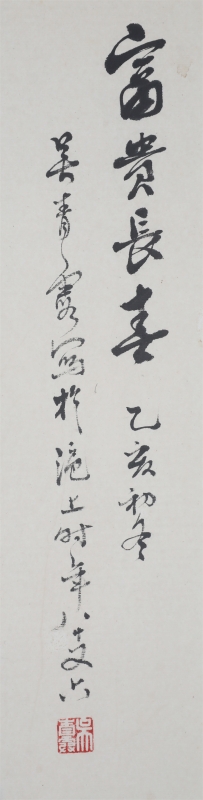 富貴長喜 乙亥初冬
吳青霞寫於滬上時年八十又六
吳青霞